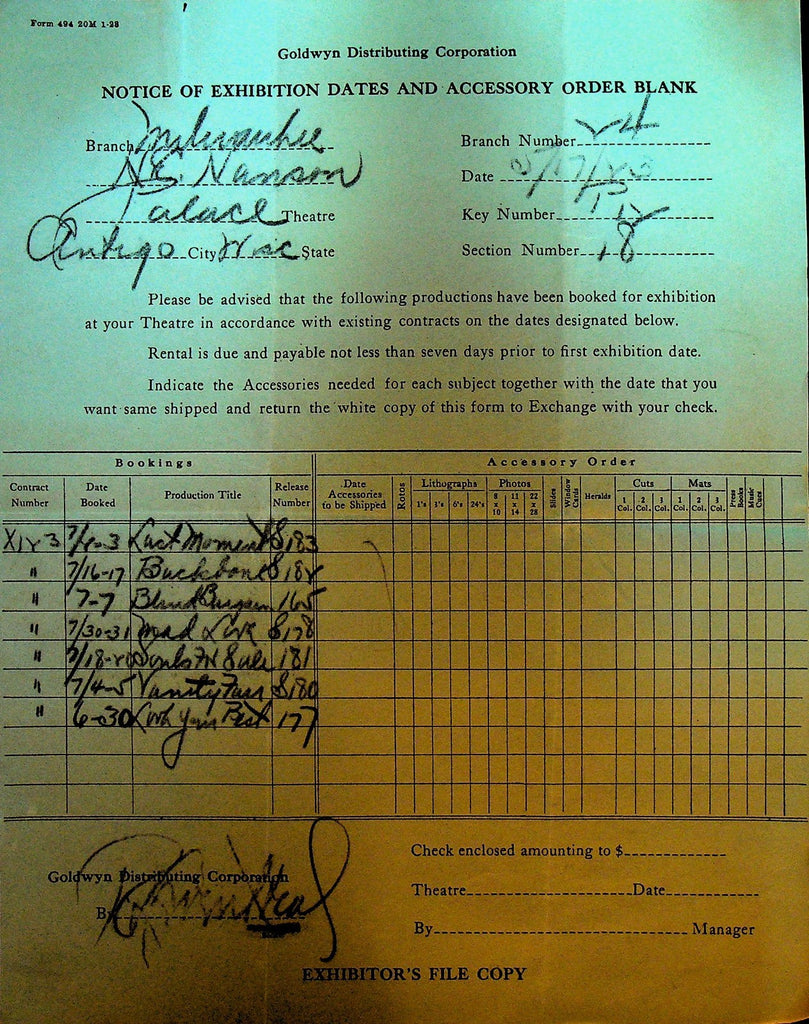 Form 494 20M 1-23
Goldwyn Distributing Corporation
NOTICE OF EXHIBITION DATES AND ACCESSORY ORDER BLANK
Branch Milwaukee Branch Number 24
Hanson Date 5/17/23
Palace Theatre Key Number 12
Antigo City Wisc State Section Number 18
Please be advised that the following productions have been booked for exhibition
at your Theatre in accordance with existing contracts on the dates designated below.
Rental is due and payable not less than seven days prior to first exhibition date.
Indicate the Accessories needed for each subject together with the date that you
want same shipped and return the white copy of this form to Exchange with your check.
Bookings Accessory Order
Contract Number Date Booked Production Title Release Number Date Accessories to be Shipped Rotos Lithographs 1's 3's 6's 24's Photos 8 x 10 11 x 14 22 x 28 Slides Window Cards Heralds Cuts 1 Col. 2 Col. 3 Col. Mats 1 Col. 2 Col. 3 Col. Press Books Music Cues
X123 Last Moment S183
" 7/16-17 Backbone S182
" 7-7 Blind Bargain 165
" 7/30-31 Mad Love S178
" Souls For Sale 181
" 7/4-5 Vanity Fair S180
" 6-30 Look Your Best 177
Goldwyn Distributing Corporation
By
Check enclosed amounting to $
Theatre Date
By Manager
EXHIBITOR'S FILE COPY